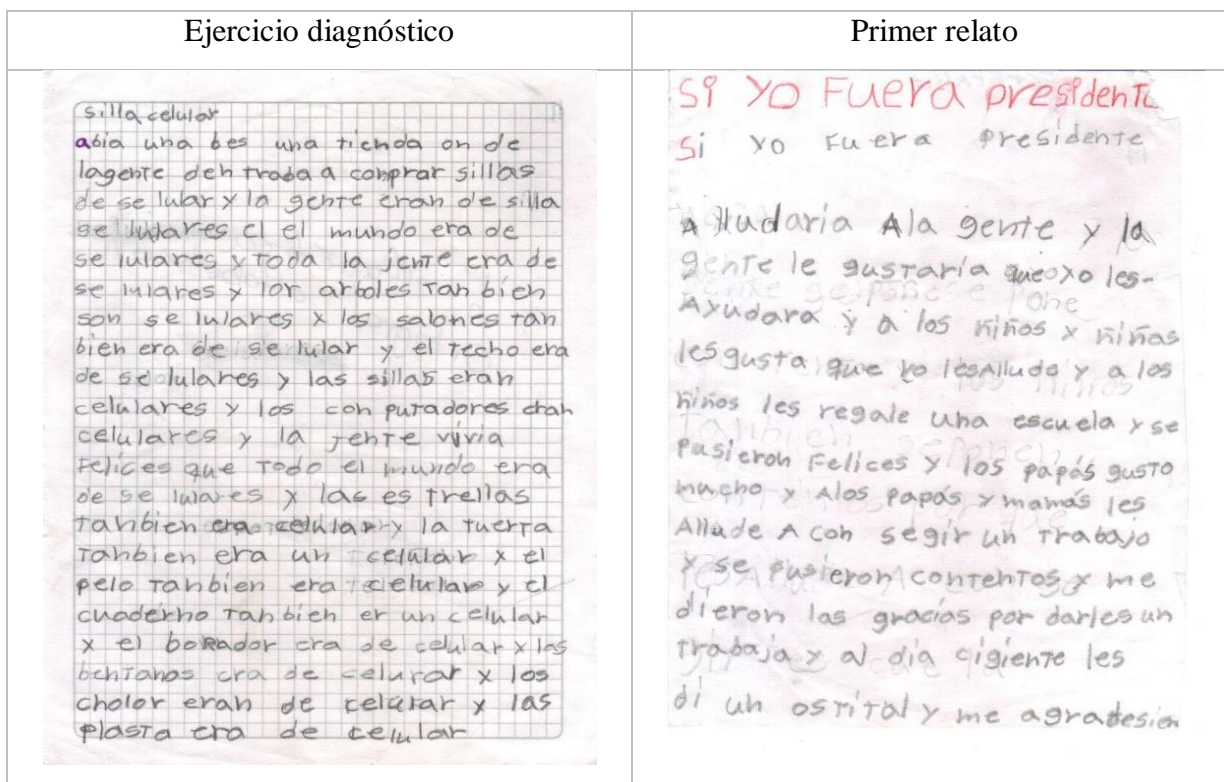 Ejercicio diagnóstico
silla celular
abia una bes una tienda on de
lagente den traba a comprar sillas
de se lular y la gente eran de silla
se lulares el el mundo era de
se lulares y toda la jente era de
se lulares y lor arboles tan bien
son se lulares y los salones tan
bien era de se lular y el techo era
de se lulares y las sillas eran
celulares y los con putadores eran
celulares y la jente vivia
Felices que todo el mundo era
de se lulares y las es trellas
tanbien era celular y la tuerra
tanbien era un celular y el
pelo tanbien era celular y el
cuaderno tan bien er un celular
y el borador era de celular y las
bentanas era de celurar y los
cholor eran de celular y las
plasta era de celular
Primer relato
Si yo Fuera presidente
Si yo Fuera presidente
A lludaria Ala gente y la
gente le gustaría que yo les-
Ayudara y a los niños y niñas
les gusta que yo les Allude y a los
niños les regale una escuela y se
pusieron Felices y los papás gusto
mucho y Alos papás y mamás les
Allude A con segir un trabajo
y se pusieron contentos y me
dieron las gracias por darles un
trabaja y al día cigiente les
di un ospital y me agradesien